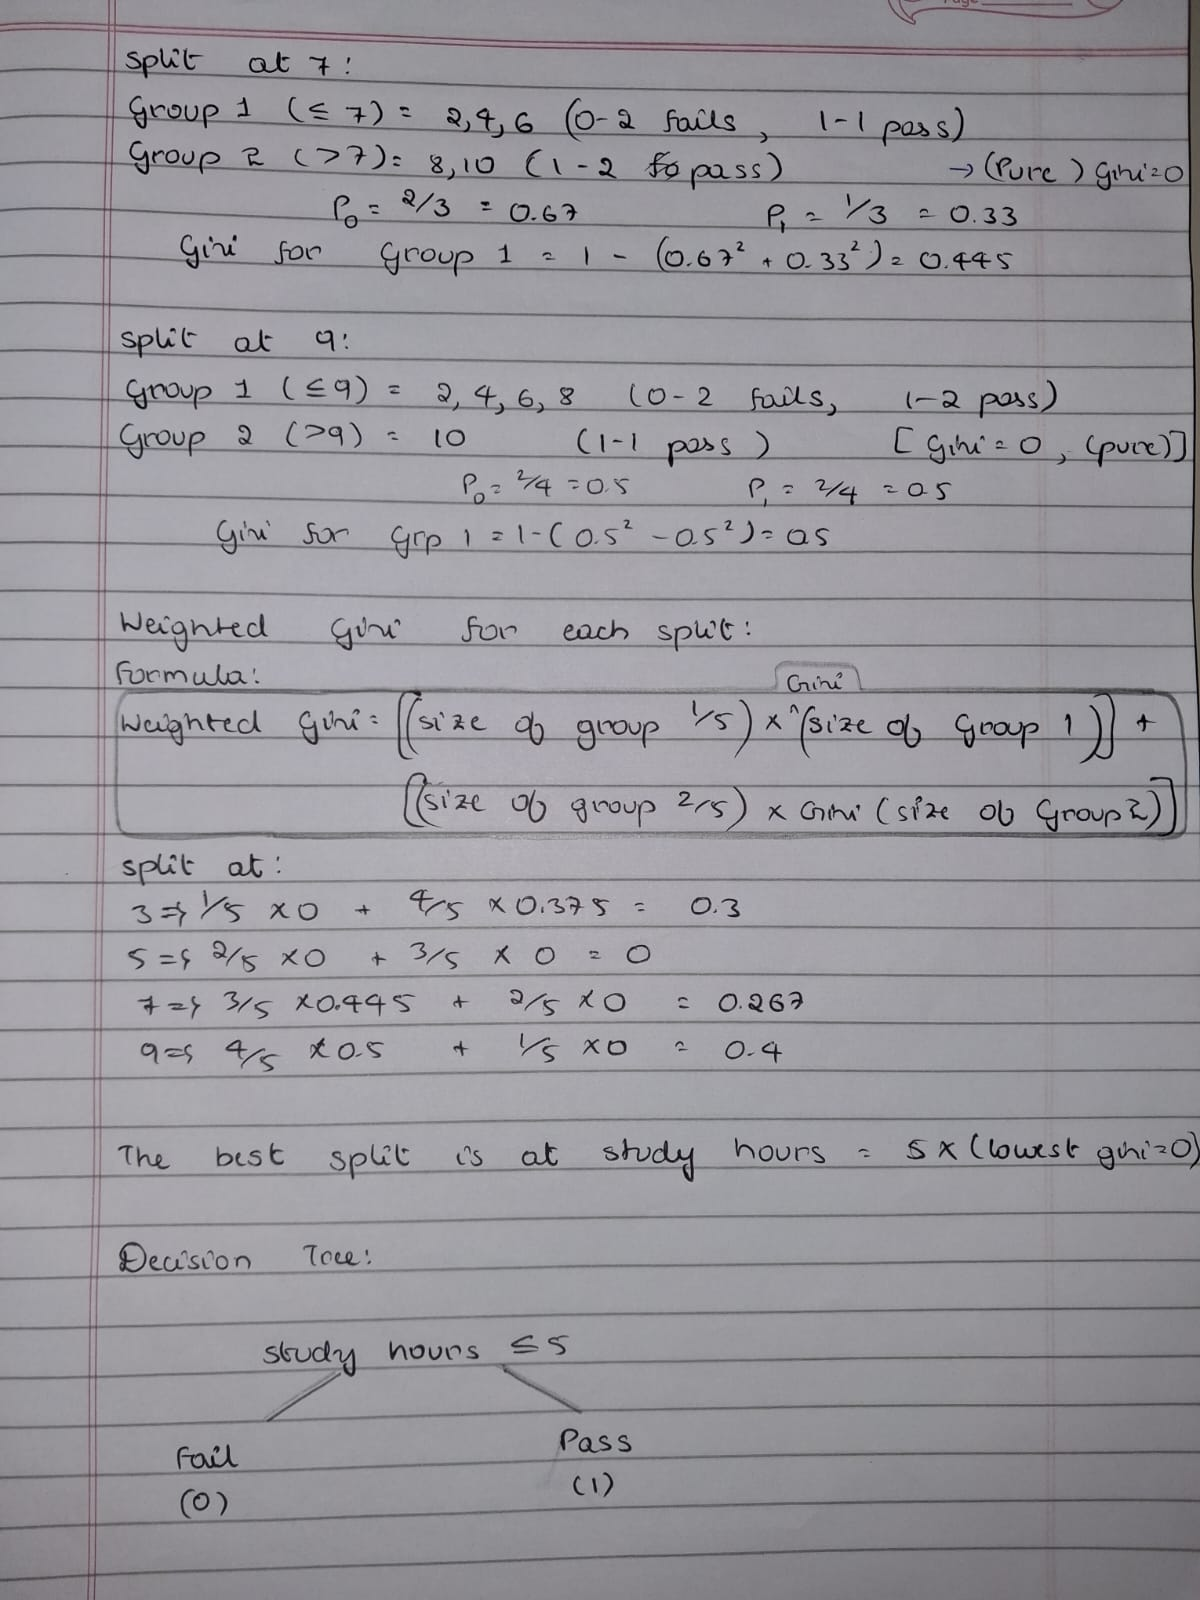 Page
split at 7:
Group 1 (≤ 7) = 2,4,6 (0-2 fails, 1-1 pass)
Group 2 (>7) = 8,10 (1-2 pass) → (Pure) Gini=0
P₀ = 2/3 = 0.67 P₁ = 1/3 = 0.33
Gini for Group 1 = 1 - (0.67² + 0.33²) = 0.445
split at 9:
Group 1 (≤9) = 2, 4, 6, 8 (0-2 fails, 1-2 pass)
Group 2 (>9) = 10 (1-1 pass) [Gini = 0, (pure)]
P₀ = 2/4 = 0.5 P₁ = 2/4 = 0.5
Gini for Grp 1 = 1-(0.5² - 0.5²) = 0.5
Weighted Gini for each split:
Formula:
Gini
Weighted Gini = [(size of group 1/5) × ^(size of Group 1)] +
[(size of group 2/5) × Gini (size of Group 2)]
split at:
3 => 1/5 × 0 + 4/5 × 0.375 = 0.3
5 => 2/5 × 0 + 3/5 × 0 = 0
7 => 3/5 × 0.445 + 2/5 × 0 = 0.267
9 => 4/5 × 0.5 + 1/5 × 0 = 0.4
The best split is at study hours = 5 x (lowest gini=0)
Decision Tree:
study hours ≤ 5
Fail Pass
(0) (1)